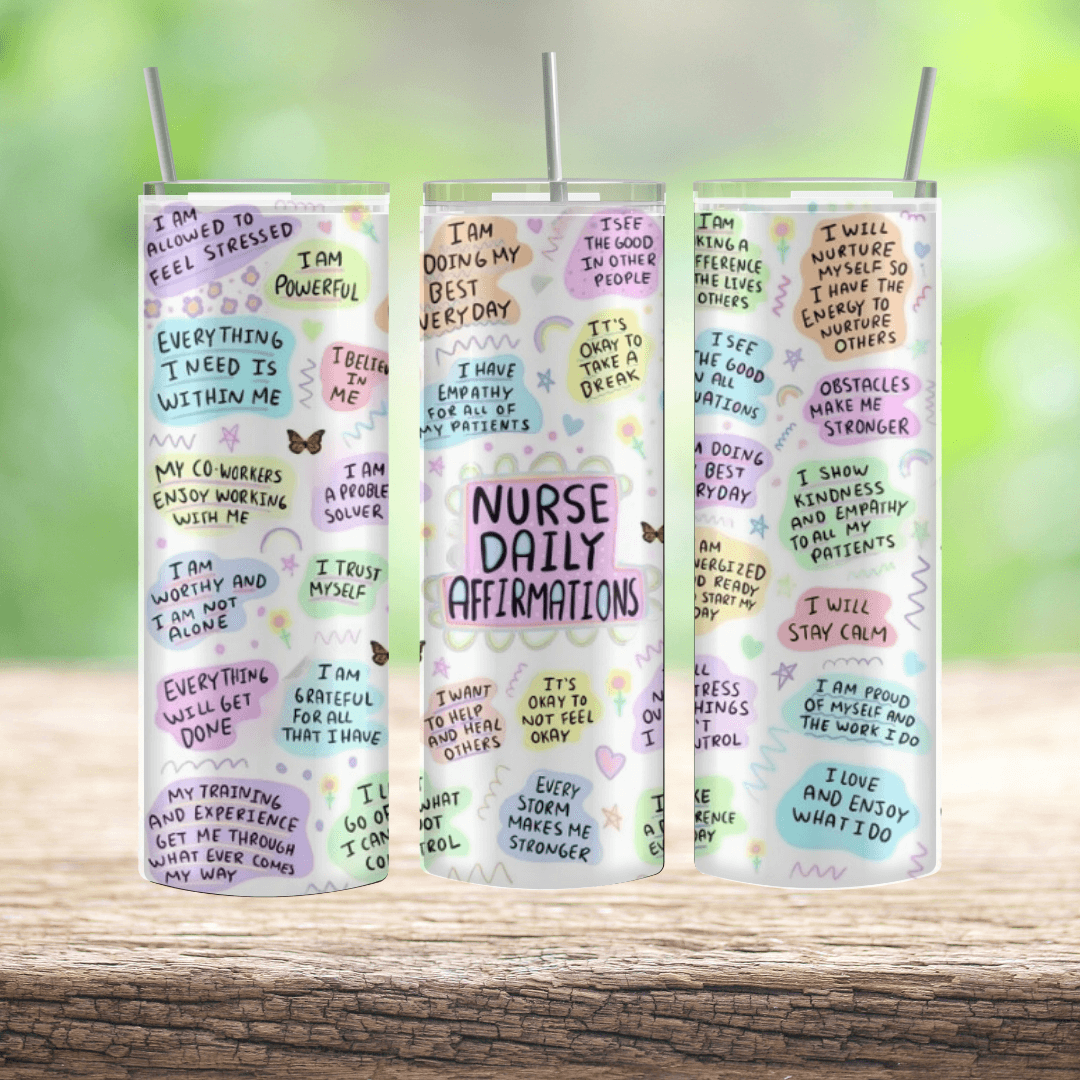 I AM
ALLOWED TO
FEEL STRESSED
I AM
POWERFUL
EVERYTHING
I NEED IS
WITHIN ME
I
IN
ME
MY CO-WORKERS
ENJOY WORKING
WITH ME
I AM
A
SOLVER
I AM
WORTHY AND
I AM NOT
ALONE
I TRUST
MYSELF
EVERYTHING
WILL GET
DONE
I AM
GRATEFUL
FOR ALL
THAT I HAVE
MY TRAINING
AND EXPERIENCE
GET ME THROUGH
WHAT EVER COMES
MY WAY
I
GO
I CAN
I AM
DOING MY
BEST
I SEE
THE GOOD
IN OTHER
PEOPLE
IT'S
OKAY TO
TAKE A
BREAK
I HAVE
EMPATHY
FOR ALL OF
MY PATIENTS
NURSE
DAILY
AFFIRMATIONS
I WANT
TO HELP
AND HEAL
OTHERS
IT'S
OKAY TO
NOT FEEL
OKAY
WHAT
EVERY
STORM
MAKES ME
STRONGER
I AM
A
THE LIVES
OTHERS
I WILL
NURTURE
MYSELF SO
I HAVE THE
ENERGY TO
NURTURE
OTHERS
I SEE
THE GOOD
ALL
OBSTACLES
MAKE ME
STRONGER
DOING
BEST
I SHOW
KINDNESS
AND EMPATHY
TO ALL MY
PATIENTS
AM
READY
START MY
DAY
I WILL
STAY CALM
I AM PROUD
OF MYSELF AND
THE WORK I DO
I LOVE
AND ENJOY
WHAT I DO